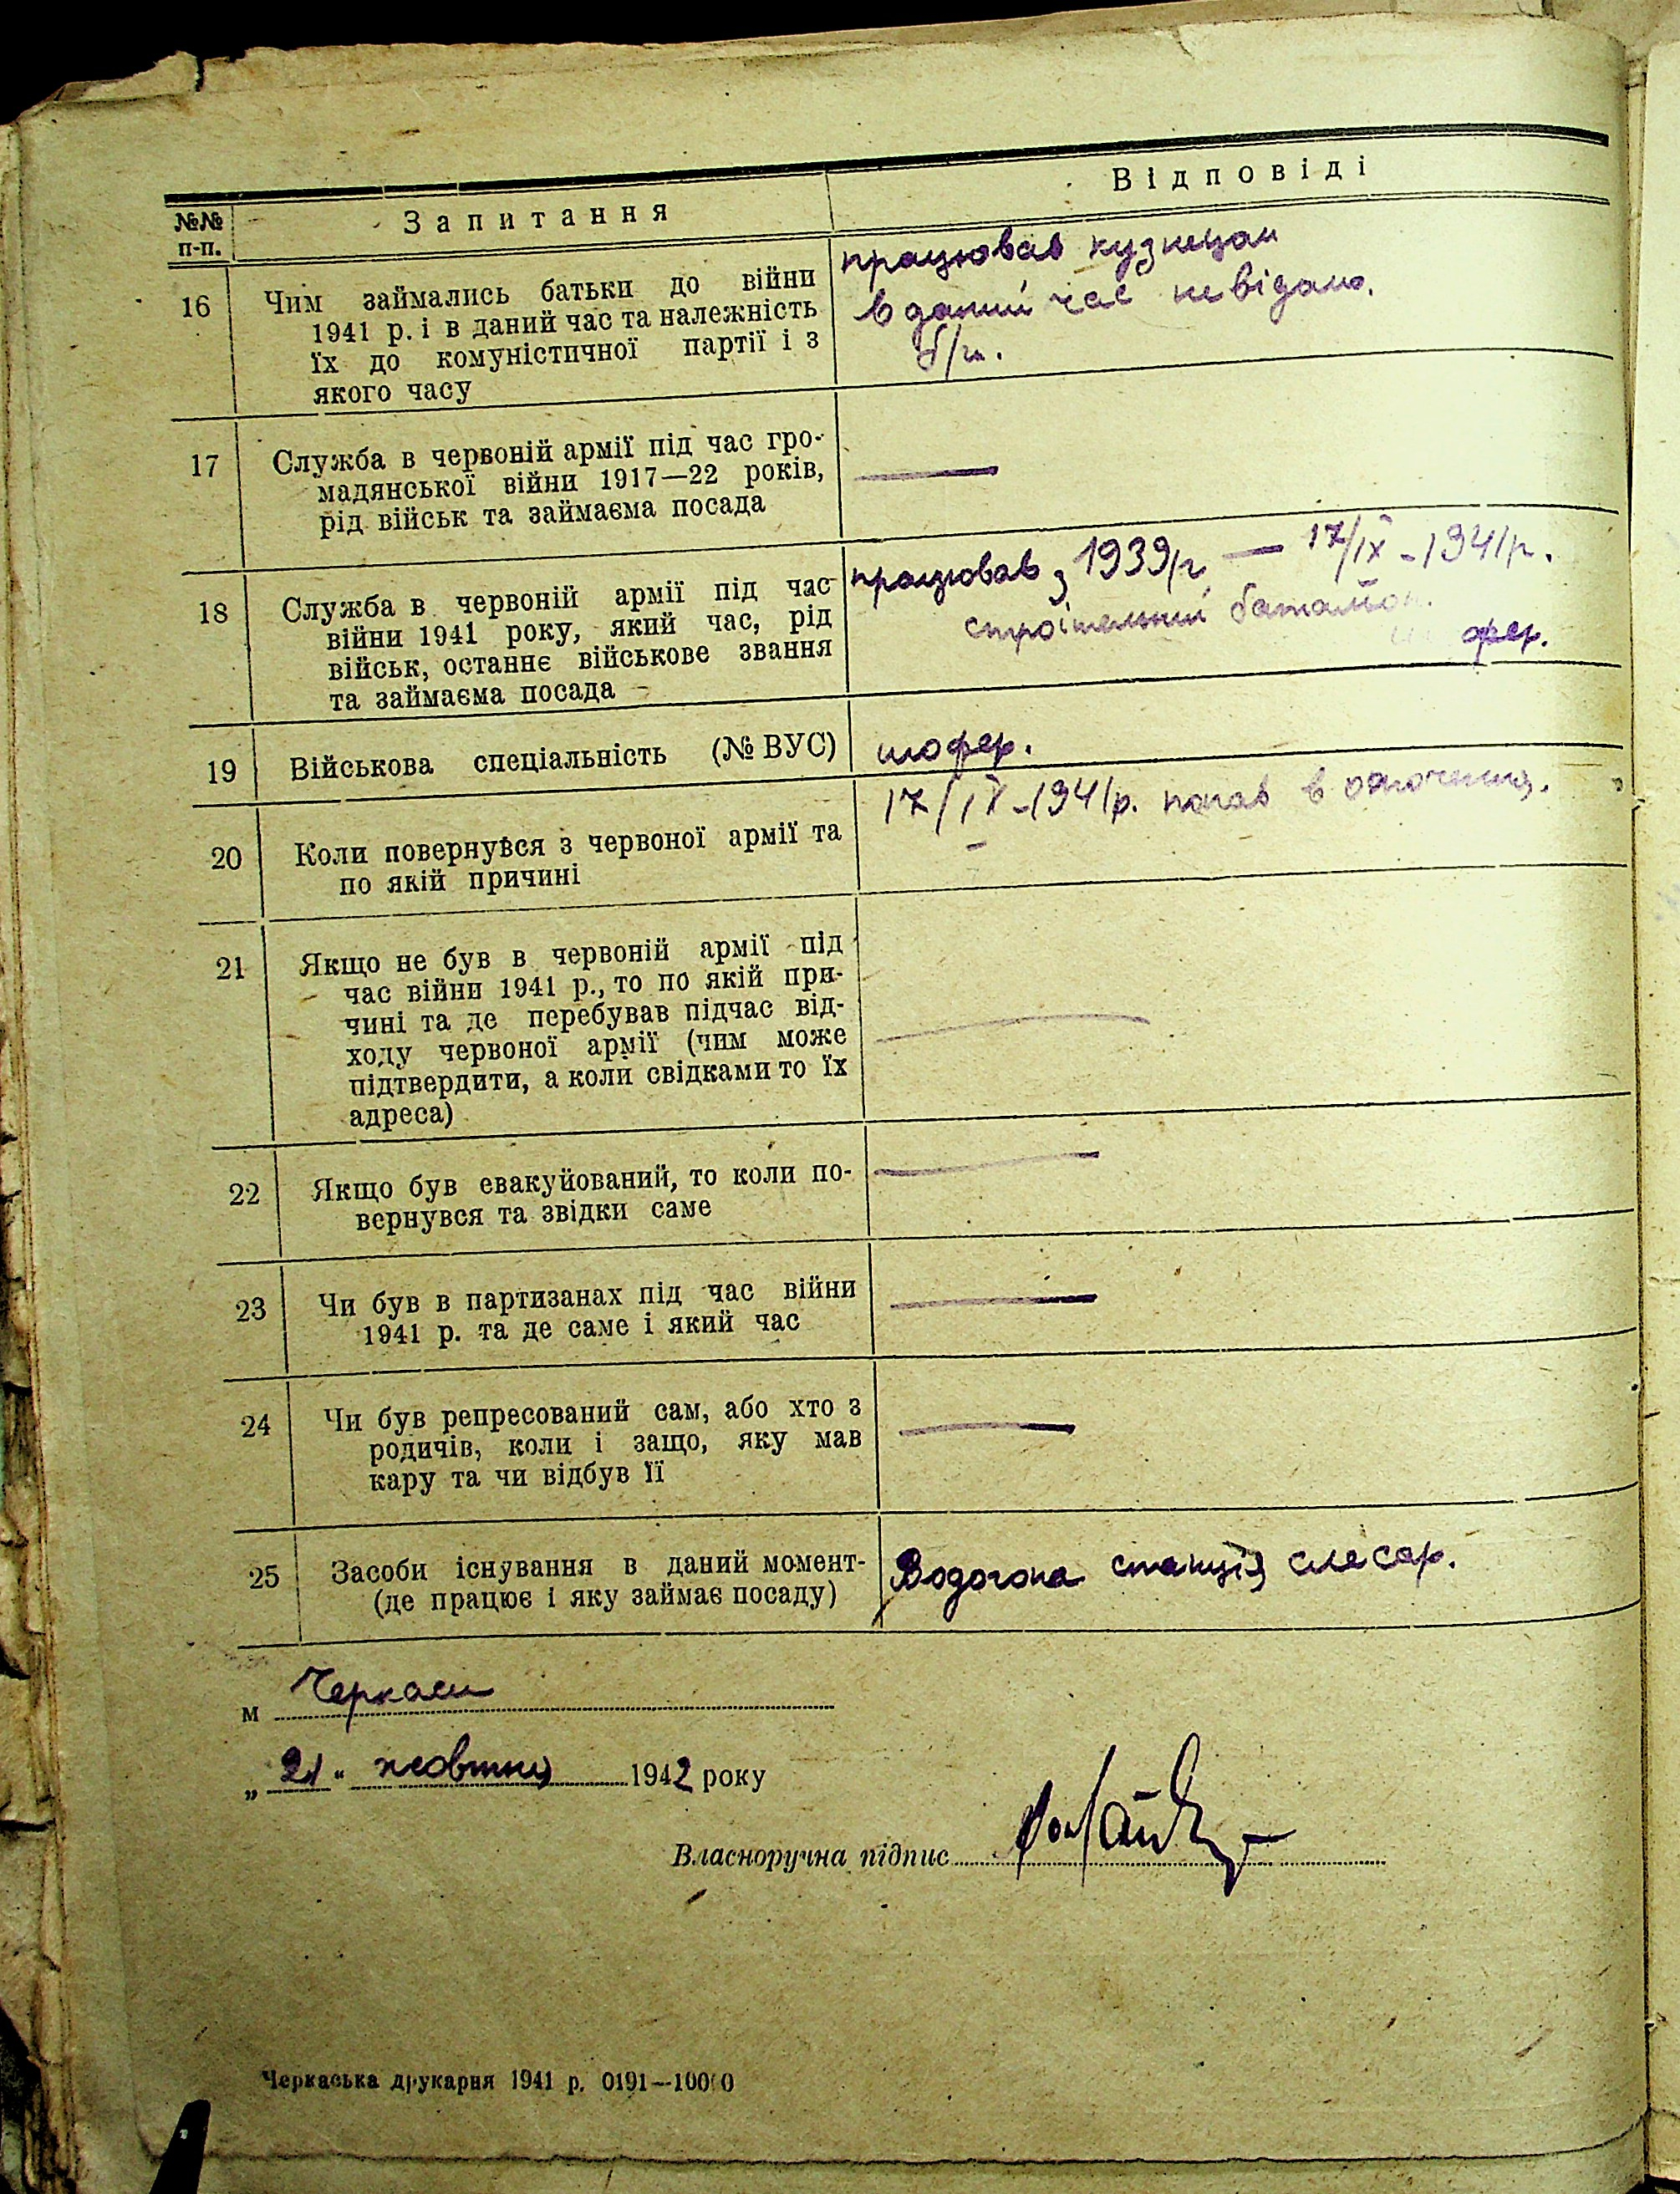 №№ п-п.
Запитання
Відповіді
16
Чим займались батьки до війни
1941 р. і в даний час та належність
їх до комуністичної партії і з
якого часу
працював кузнецом
в даний час невідомо.
б/п.
17
Служба в червоній армії під час гро-
мадянської війни 1917—22 років,
рід військ та займаєма посада
—
18
Служба в червоній армії під час
війни 1941 року, який час, рід
військ, останнє військове звання
та займаєма посада
працював з 1939/р — 17/ІХ-1941р.
строітельний батальйон.
шофер.
19
Військова спеціальність (№ ВУС)
шофер.
20
Коли повернувся з червоної армії та
по якій причині
17/ІХ-1941р. попав в оточення.
21
Якщо не був в червоній армії під
час війни 1941 р., то по якій при-
чині та де перебував підчас від-
ходу червоної армії (чим може
підтвердити, а коли свідками то їх
адреса)
—
22
Якщо був евакуйований, то коли по-
вернувся та звідки саме
—
23
Чи був в партизанах під час війни
1941 р. та де саме і який час
—
24
Чи був репресований сам, або хто з
родичів, коли і защо, яку мав
кару та чи відбув її
—
25
Засоби існування в даний момент-
(де працює і яку займає посаду)
Водогона станція слесар.
м Черкаси
„21“ жовтня 1942 року
Власноручна підпис
Черкаська друкарня 1941 р. 0191—10000